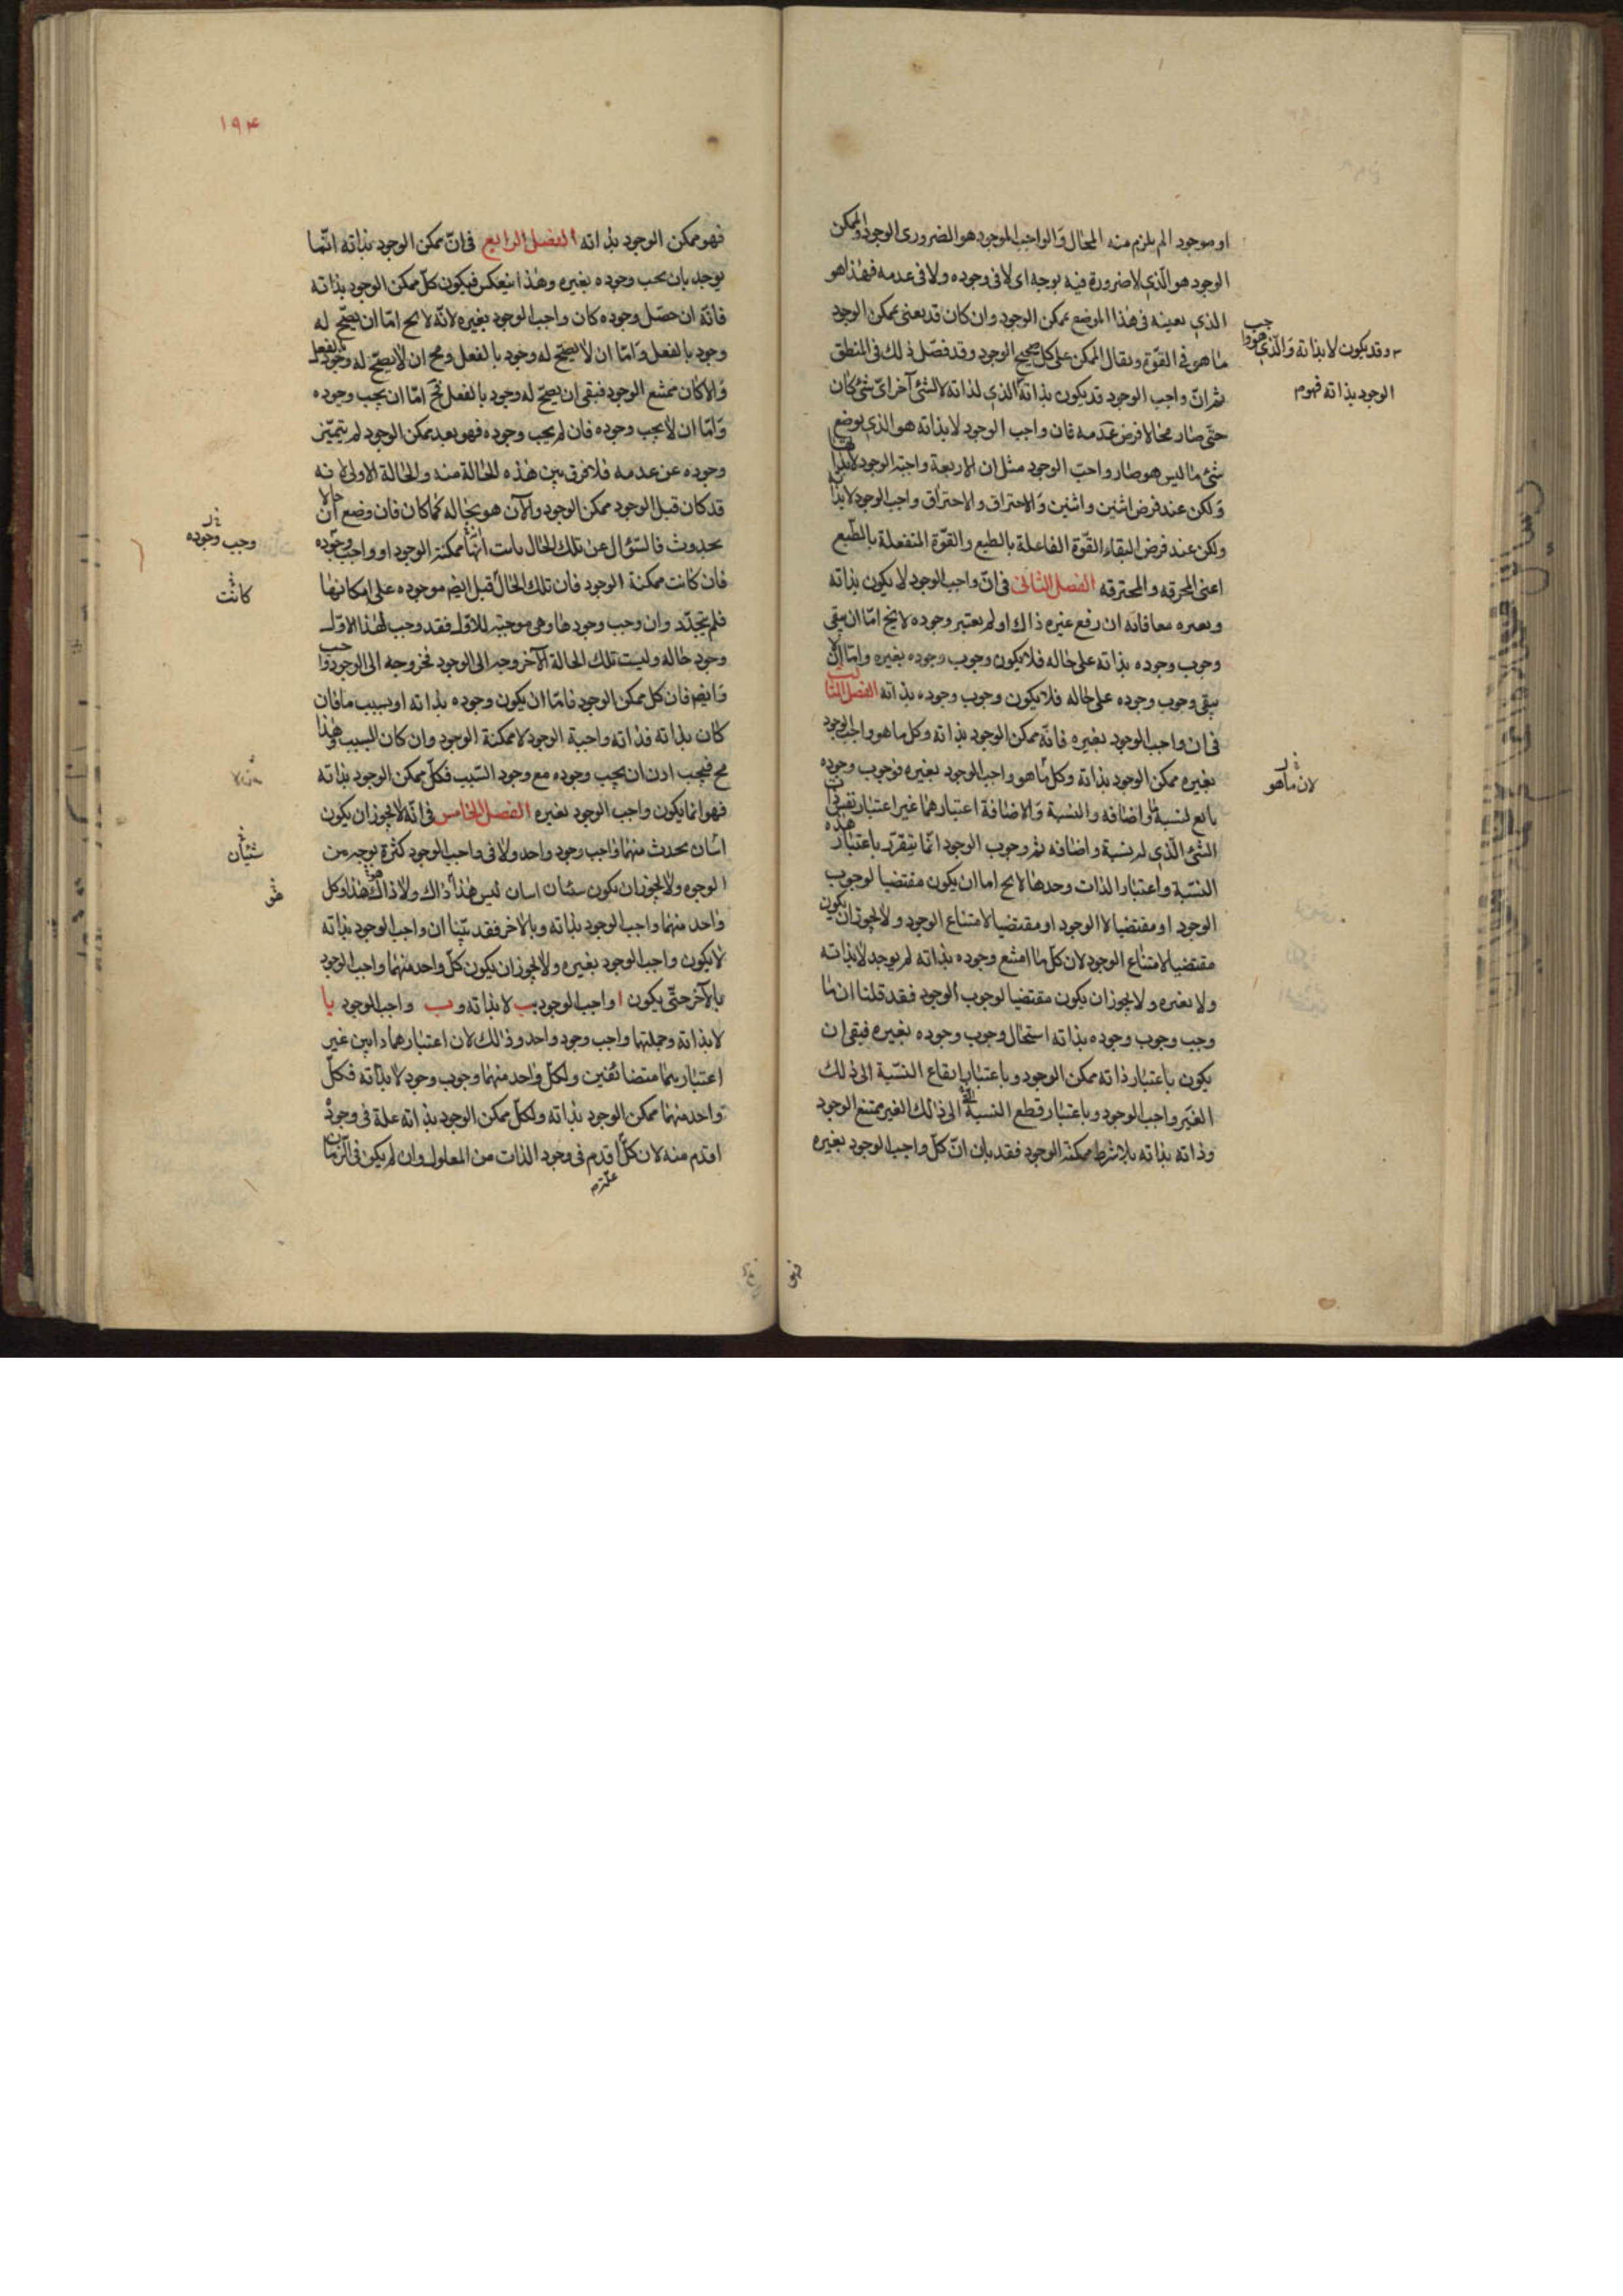 او موجود الم يلزم منه المحال والواجب الموجود هو الضرورى الوجود والممكن
الوجود هو الذي لا ضرورة فيه بوجه اى لا فى وجوده ولا فى عدمه فهذا هو
الذي نعينه فى هذا الموضع بممكن الوجود وان كان قد يعنى بممكن الوجود
ما هو فى القوة ويقال الممكن على كل صحيح الوجود وقد فصّل ذلك فى المنطق
ثم انّ واجب الوجود قد يكون بذاته الذي لذاته لا لشئ آخر اىّ شئ كان
حتى صار محالا فرض عدمه فان واجب الوجود لا بذاته هو الذي يوضع
شئ ما ليس هو صار واجب الوجود مثل ان الاربعة واجبة الوجود لا بذاتها
ولكن عند فرض اثنين واثنين والاحتراق والاحتراق واجب الوجود لا بذاته
ولكن عند فرض التقاء القوّة الفاعلة بالطبع والقوّة المنفعلة بالطبع
اعنى المحرقه والمحترقه الفصل الثانى فى انّ واجب الوجود لا يكون بذاته
وبغيره معا فانه ان رفع غيره ذاك او لم يعتبر وجوده لا يخ امّا ان يبقى
وجوب وجوده بذاته على حاله فلا يكون وجوب وجوده بغيره وامّا ان لا
يبقى وجوب وجوده على حاله فلا يكون وجوب وجوده بذاته الفصل الثالث
فى ان واجب الوجود بغيره فانّه ممكن الوجود بذاته وكل ما هو واجب الوجود
بغيره ممكن الوجود بذاته وكل ما هو واجب الوجود بغيره فوجوب وجوده
تابع لنسبة ما واضافه والنسبة والاضافة اعتبارهما غير اعتبار نفس ذات
الشئ الّذي له نسبة واضافه ثم وجوب الوجود انّما يتقرّر باعتبار هذه
النسّبة واعتبار الذات وحدها لا يخ اما ان يكون مقتضيا لوجوب
الوجود او مقتضيا لا الوجود او مقتضيا لامتناع الوجود ولا يجوز ان يكون
مقتضيا لامتناع الوجود لان كلّ ما امتنع وجوده بذاته لم يوجد لا بذاته
ولا بغيره ولا يجوز ان يكون مقتضيا لوجوب الوجود فقد قلنا ان ما
وجب وجوب وجوده بذاته استحال وجوب وجوده بغيره فبقى ان
يكون باعتبار ذاته ممكن الوجود وباعتبار ايقاع النسّبة الى ذلك
الغير واجب الوجود وباعتبار قطع النسبة التى الى ذلك الغير ممتنع الوجود
وذاته بذاته بلا شرط ممكنة الوجود فقد بان انّ كلّ واجب الوجود بغيره
وقد يكون لا بذاته والّذي هو واجب
الوجود بذاته فهو م
لان ما هو
فهو
١٩٤
فهو ممكن الوجود بذاته الفصل الرابع فى انّ ممكن الوجود بذاته انّما
يوجد بان يجب وجوده بغيره وهذا ينعكس فيكون كلّ ممكن الوجود بذاته
فانّه ان حصّل وجوده كان واجب الوجود بغيره لانّه لا يخ امّا ان يصحّ له
وجود بالفعل وامّا ان لا يصحّ له وجود بالفعل ومح ان لا يصحّ له وجود بالفعل
والا كان ممتنع الوجود فبقى ان يصحّ له وجود بالفعل فح امّا ان يجب وجوده
وامّا ان لا يجب وجوده فان لم يجب وجوده فهو بعد ممكن الوجود لم يتميّز
وجوده عن عدمه فلا فرق بين هذه الحالة منه والحالة الاولى لانه
قد كان قبل الوجود ممكن الوجود والآن هو بحاله كما كان فان وضع ان حالا
تجددت فالسّؤال عن تلك الحال ثابت انّها ممكنة الوجود او واجب وجوده
فان كانت ممكنة الوجود فان تلك الحال قبل ايضم موجوده على امكانها
فلم يتجدّد وان وجب وجودها وهى موجبة للاوّل فقد وجب لهذا الاوّل
وجود حاله وليست تلك الحالة الا خروجه الى الوجود فخروجه الى الوجود واجب
وايضم فان كل ممكن الوجود فامّا ان يكون وجوده بذاته او بسبب ما فان
كان بذاته فذاته واجبة الوجود لا ممكنة الوجود وان كان لسبب وهذا
مح فيجب اذن ان يجب وجوده مع وجود السّبب فكلّ ممكن الوجود بذاته
فهو انما يكون واجب الوجود بغيره الفصل الخامس فى انّه لا يجوز ان يكون
اثنان يحدث منهما واجب وجود واحد ولا فى واجب الوجود كثرة بوجه من
الوجوه ولا يجوز ان يكون شيئان اثنان ليس هذا ذاك ولا ذاك هذا وكل
واحد منهما واجب الوجود بذاته وبالاخر فقد بيّنا ان واجب الوجود بذاته
لا يكون واجب الوجود بغيره ولا يجوز ان يكون كلّ واحد منهما واجب الوجود
بالآخر حتّى يكون ا واجب الوجود بب لا بذاته وب واجب الوجود با
لا بذاته وجملتهما واجب وجود واحد وذلك لان اعتبارهما ذاتين غير
اعتبارهما متضائفين ولكلّ واحد منهما وجوب وجود لا بذاته فكلّ
واحد منهما ممكن الوجود بذاته ولكلّ ممكن الوجود بذاته علة فى وجوده
اقدم منه لان كلّ اقدم فى وجود الذات من المعلول وان لم يكن فى الزمان
علّة م
وجب وجوده
كانت
شيئان
هو